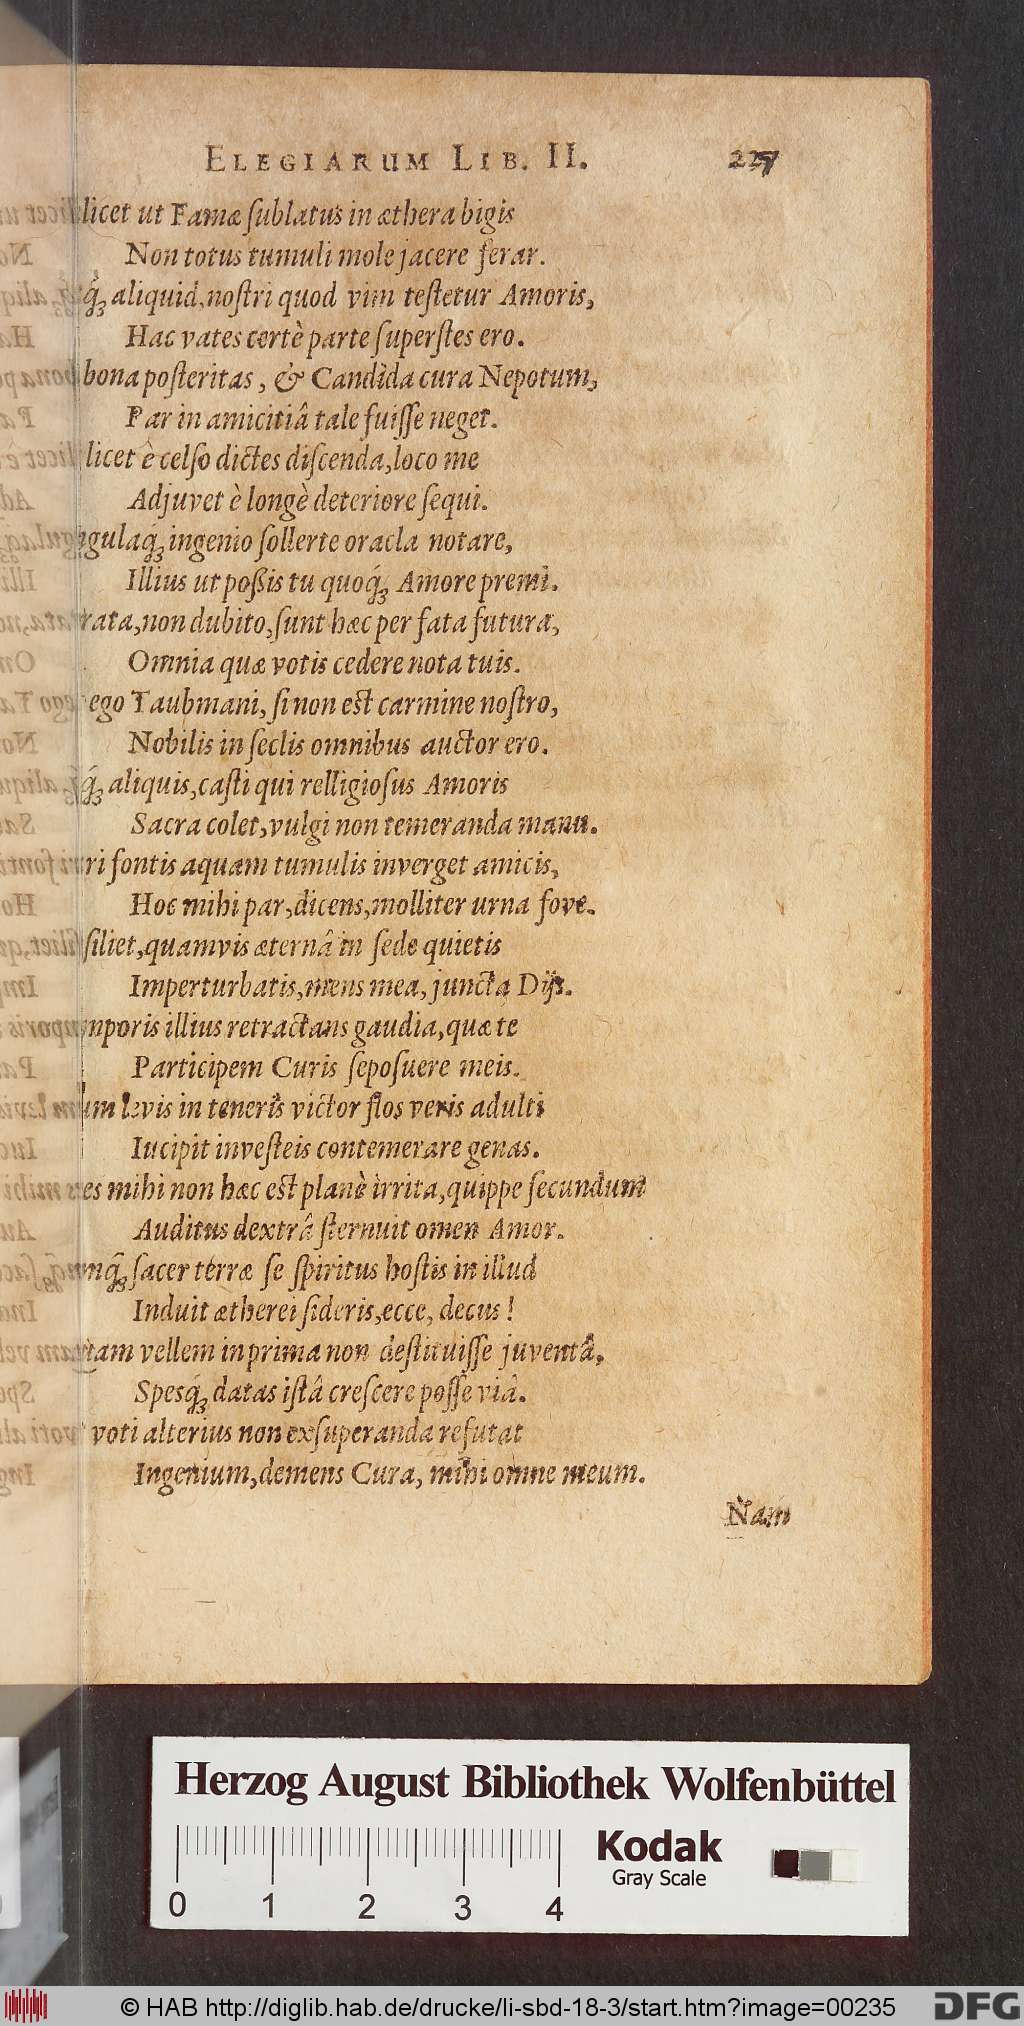 ELEGIARUM LIB. II. 227
licet ut Famæ ſublatus in æthera bigis
Non totus tumuli mole jacere ferar.
q́ꝫ aliquid, noſtri quod vim teſtetur Amoris,
Hac vates certè parte ſuperſtes ero.
bona poſteritas, & Candida cura Nepotum,
Par in amicitiâ tale fuiſſe neget.
licet è celſo dictes diſcenda, loco me
Adjuvet è longè deteriore ſequi.
gulaq́ꝫ ingenio ſollerte oracla notare,
Illius ut poßis tu quoq́ꝫ Amore premi.
rata, non dubito, ſunt hæc per fata futura,
Omnia quæ votis cedere nota tuis.
ego Taubmani, ſi non eſt carmine noſtro,
Nobilis in ſeclis omnibus auctor ero.
q́ꝫ aliquis, caſti qui relligioſus Amoris
Sacra colet, vulgi non temeranda manu.
ri fontis aquam tumulis inverget amicis,
Hoc mihi par, dicens, molliter urna fove.
ſiliet, quamvis æternâ in ſede quietis
Imperturbatis, mens mea, juncta Dijs.
mporis illius retractans gaudia, quæ te
Participem Curis ſepoſuere meis.
um levis in teneris victor flos veris adulti
Iucipit inveſteis contemerare genas.
es mihi non hæc eſt planè irrita, quippe ſecundum
Auditus dextrâ ſternuit omen Amor.
mq̃ꝫ ſacer terræ ſe ſpiritus hoſtis in illud
Induit ætherei ſideris, ecce, decus!
tam vellem in prima non deſtituiſſe juventâ,
Spesq́ꝫ datas iſtâ creſcere poſſe viâ.
voti alterius non exſuperanda refutat
Ingenium, demens Cura, mihi omne meum.
Nam
Herzog August Bibliothek Wolfenbüttel
Kodak
Gray Scale
0 1 2 3 4
© HAB http://diglib.hab.de/drucke/li-sbd-18-3/start.htm?image=00235
DFG